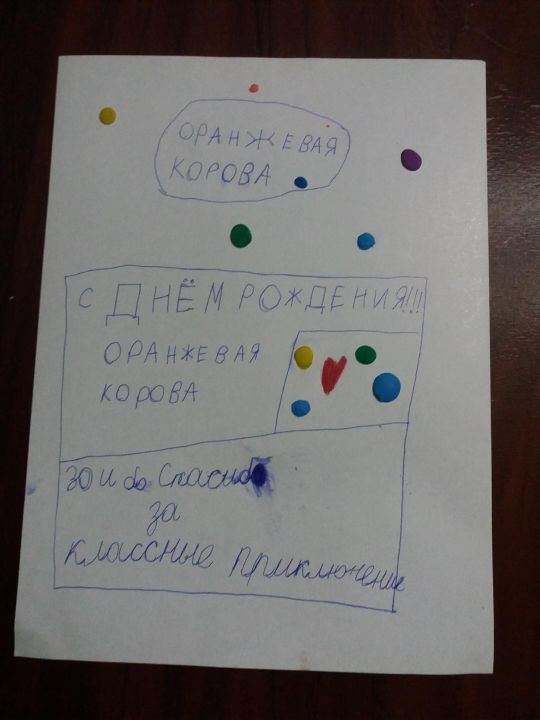 ОРАНЖЕВАЯ
КОРОВА
С ДНЁМ РОЖДЕНИЯ!!!
ОРАНЖЕВАЯ
КОРОВА
ЗО и бо Спасибо
за
классные приключение